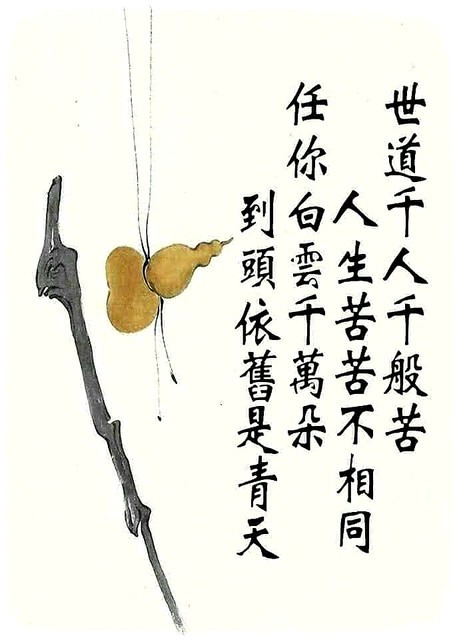 世道千人千般苦
人生苦苦不相同
任你白雲千萬朵
到頭依舊是青天